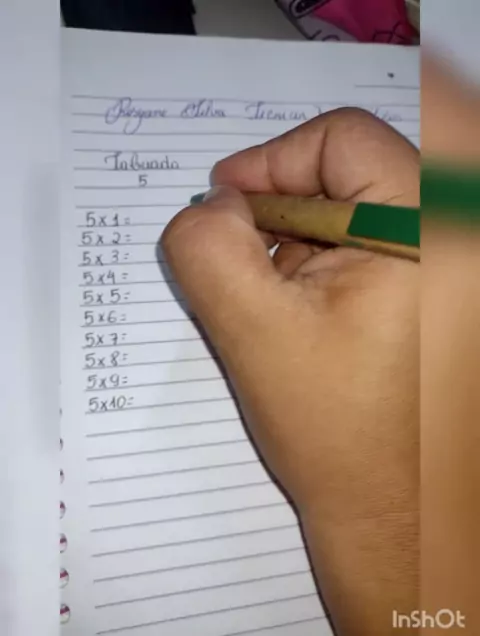 Silva
Tabuada
5
5x1=
5x2=
5x3=
5x4=
5x5=
5x6=
5x7=
5x8=
5x9=
5x10=
InShOt